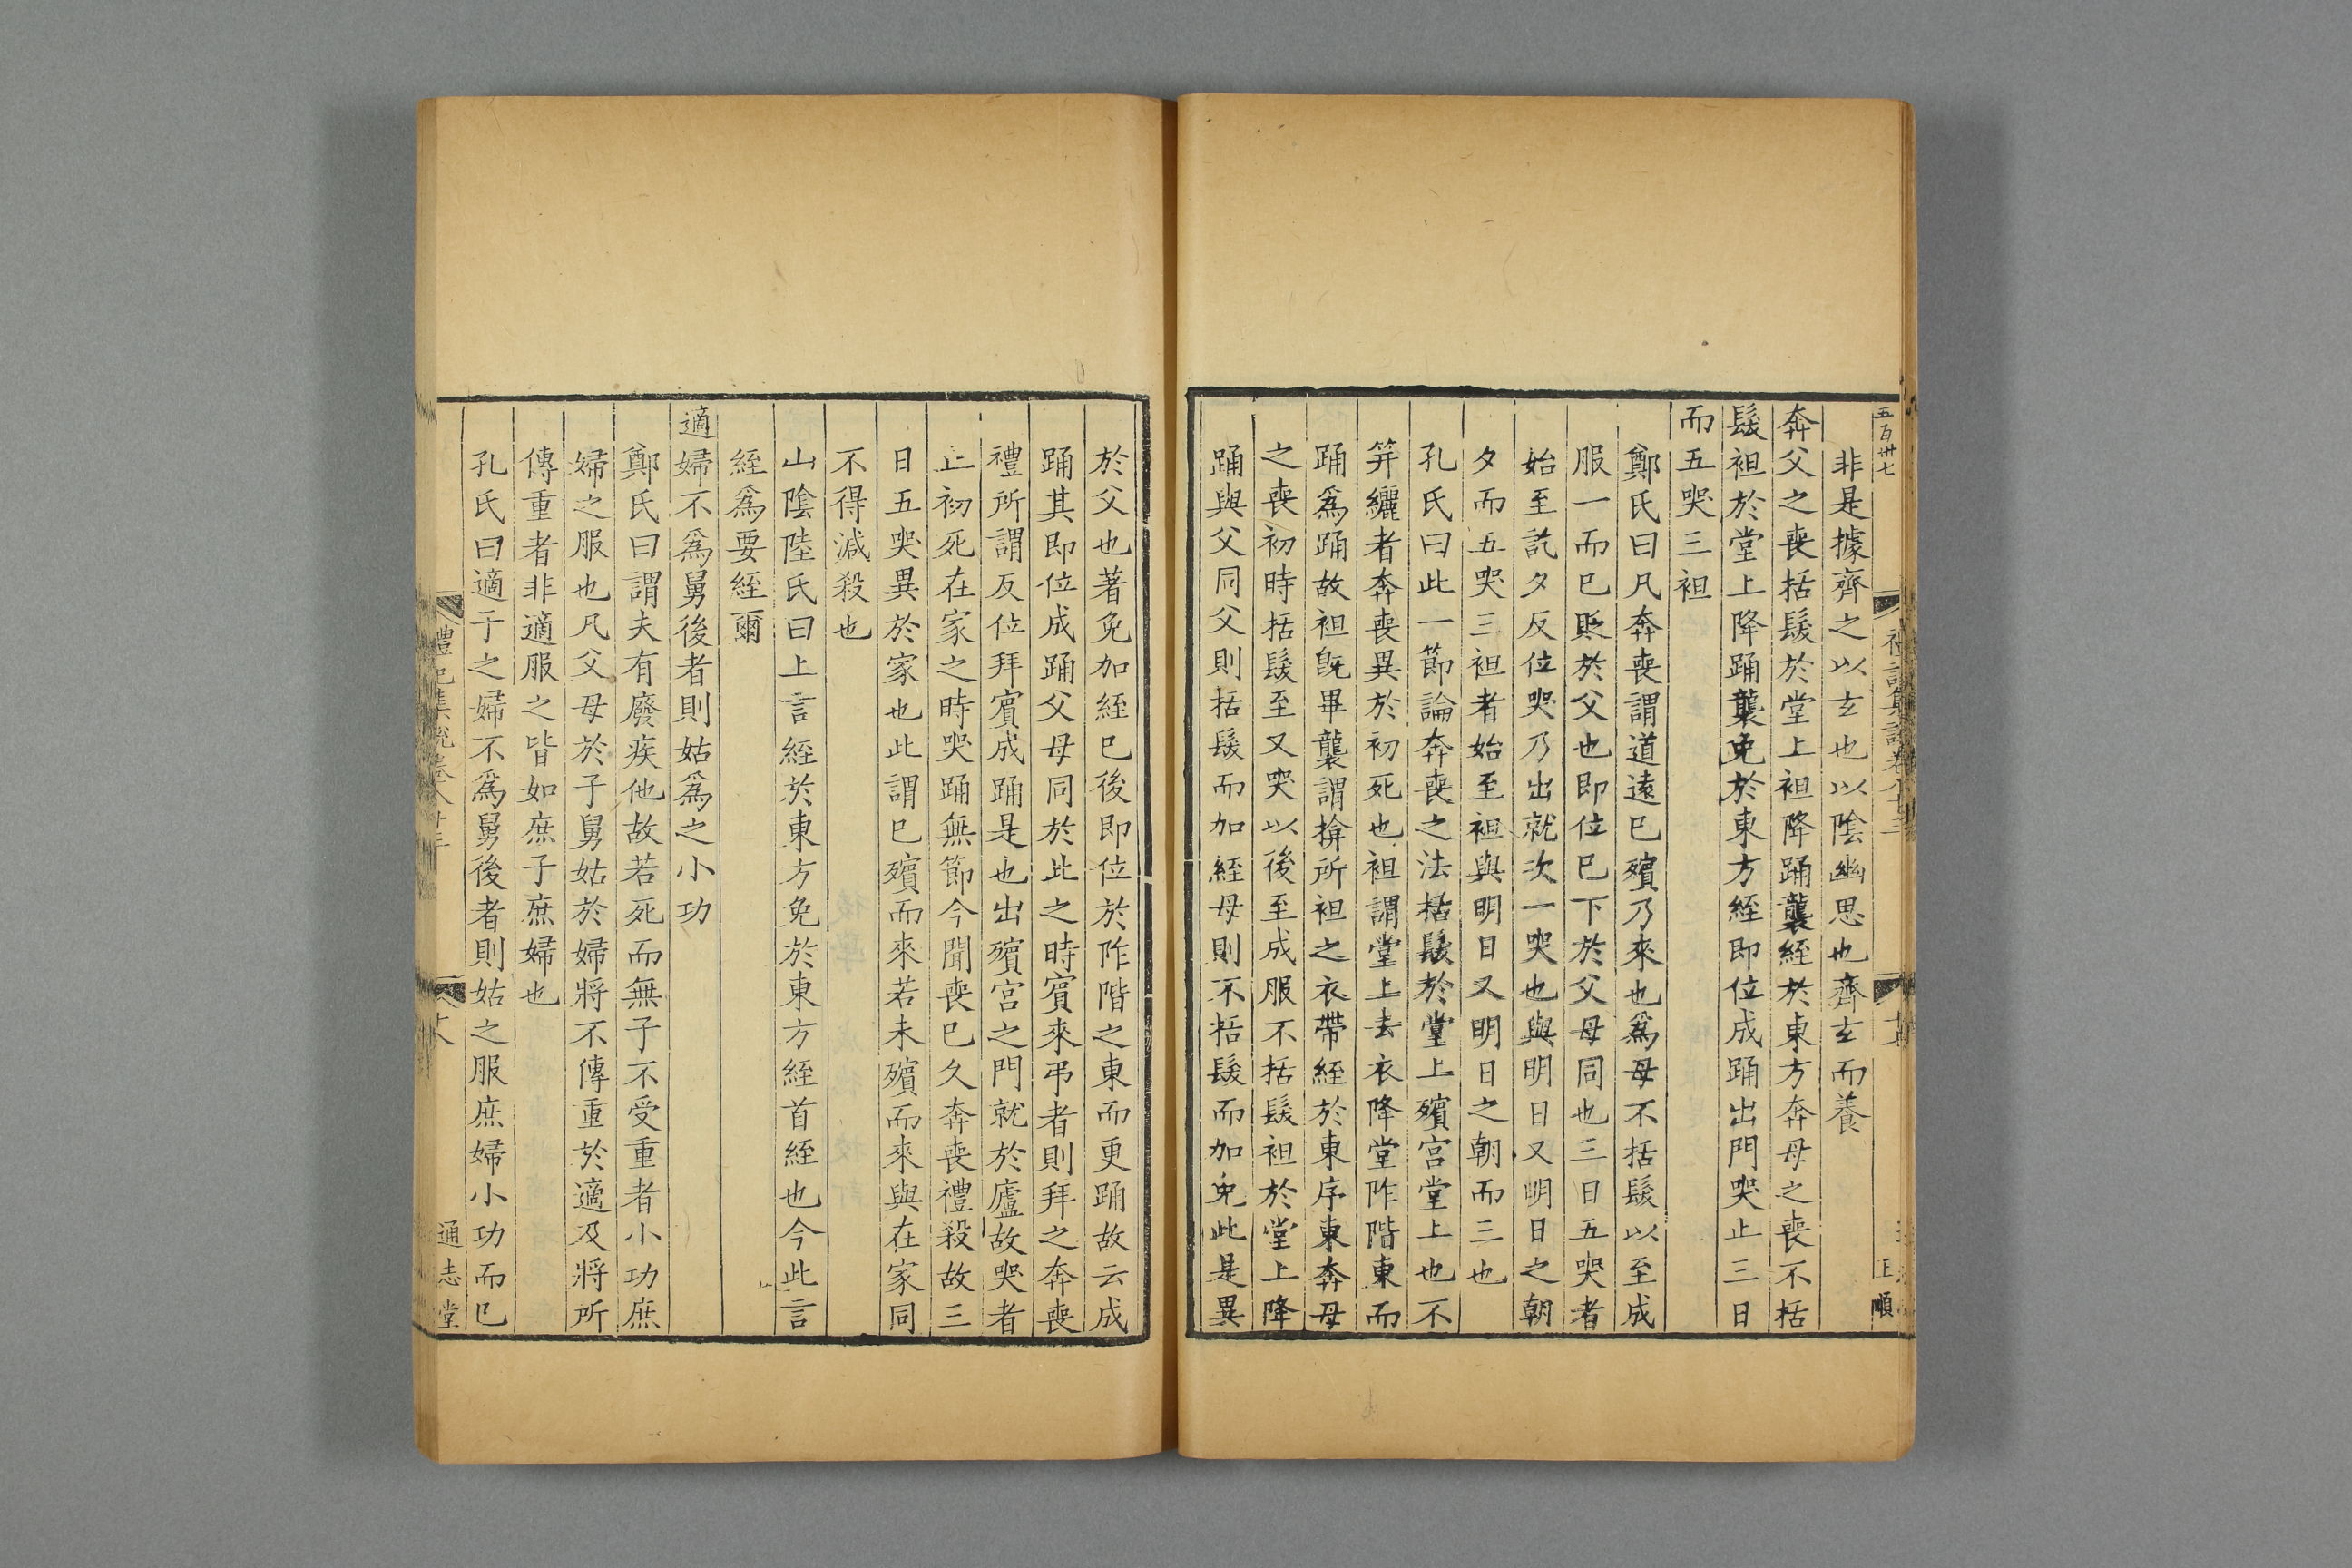 五百卅七
非是據齊之以玄也以陰幽思也齊玄而養
奔父之喪括髮於堂上袒降踊襲絰於東方奔母之喪不括
髮袒於堂上降踊襲免於東方絰即位成踊出門哭止三日
而五哭三袒
鄭氏曰凡奔喪謂道遠已殯乃來也爲母不括髮以至成
服一而已貶於父也即位已下於父母同也三日五哭者
始至訖夕反位哭乃出就次一哭也與明日又明日之朝
夕而五哭三袒者始至袒與明日又明日之朝而三也
孔氏曰此一節論奔喪之法括髮於堂上殯宮堂上也不
笄纚者奔喪異於初死也袒謂堂上去衣降堂阼階東而
踊爲踊故袒旣畢襲謂揜所袒之衣帶絰於東序東奔母
之喪初時括髮至又哭以後至成服不括髮袒於堂上降
踊與父同父則括髮而加絰母則不括髮而加免此是異
於父也著免加絰已後即位於阼階之東而更踊故云成
踊其即位成踊父母同於此之時賓來弔者則拜之奔喪
禮所謂反位拜賓成踊是也出殯宮之門就於廬故哭者
止初死在家之時哭踊無節今聞喪已久奔喪禮殺故三
日五哭異於家也此謂已殯而來若未殯而來與在家同
不得減殺也
山陰陸氏曰上言絰於東方免於東方絰首絰也今此言
絰爲要絰爾
適婦不爲舅後者則姑爲之小功
鄭氏曰謂夫有廢疾他故若死而無子不受重者小功庶
婦之服也凡父母於子舅姑於婦將不傳重於適及將所
傳重者非適服之皆如庶子庶婦也
孔氏曰適子之婦不爲舅後者則姑之服庶婦小功而已
通志堂